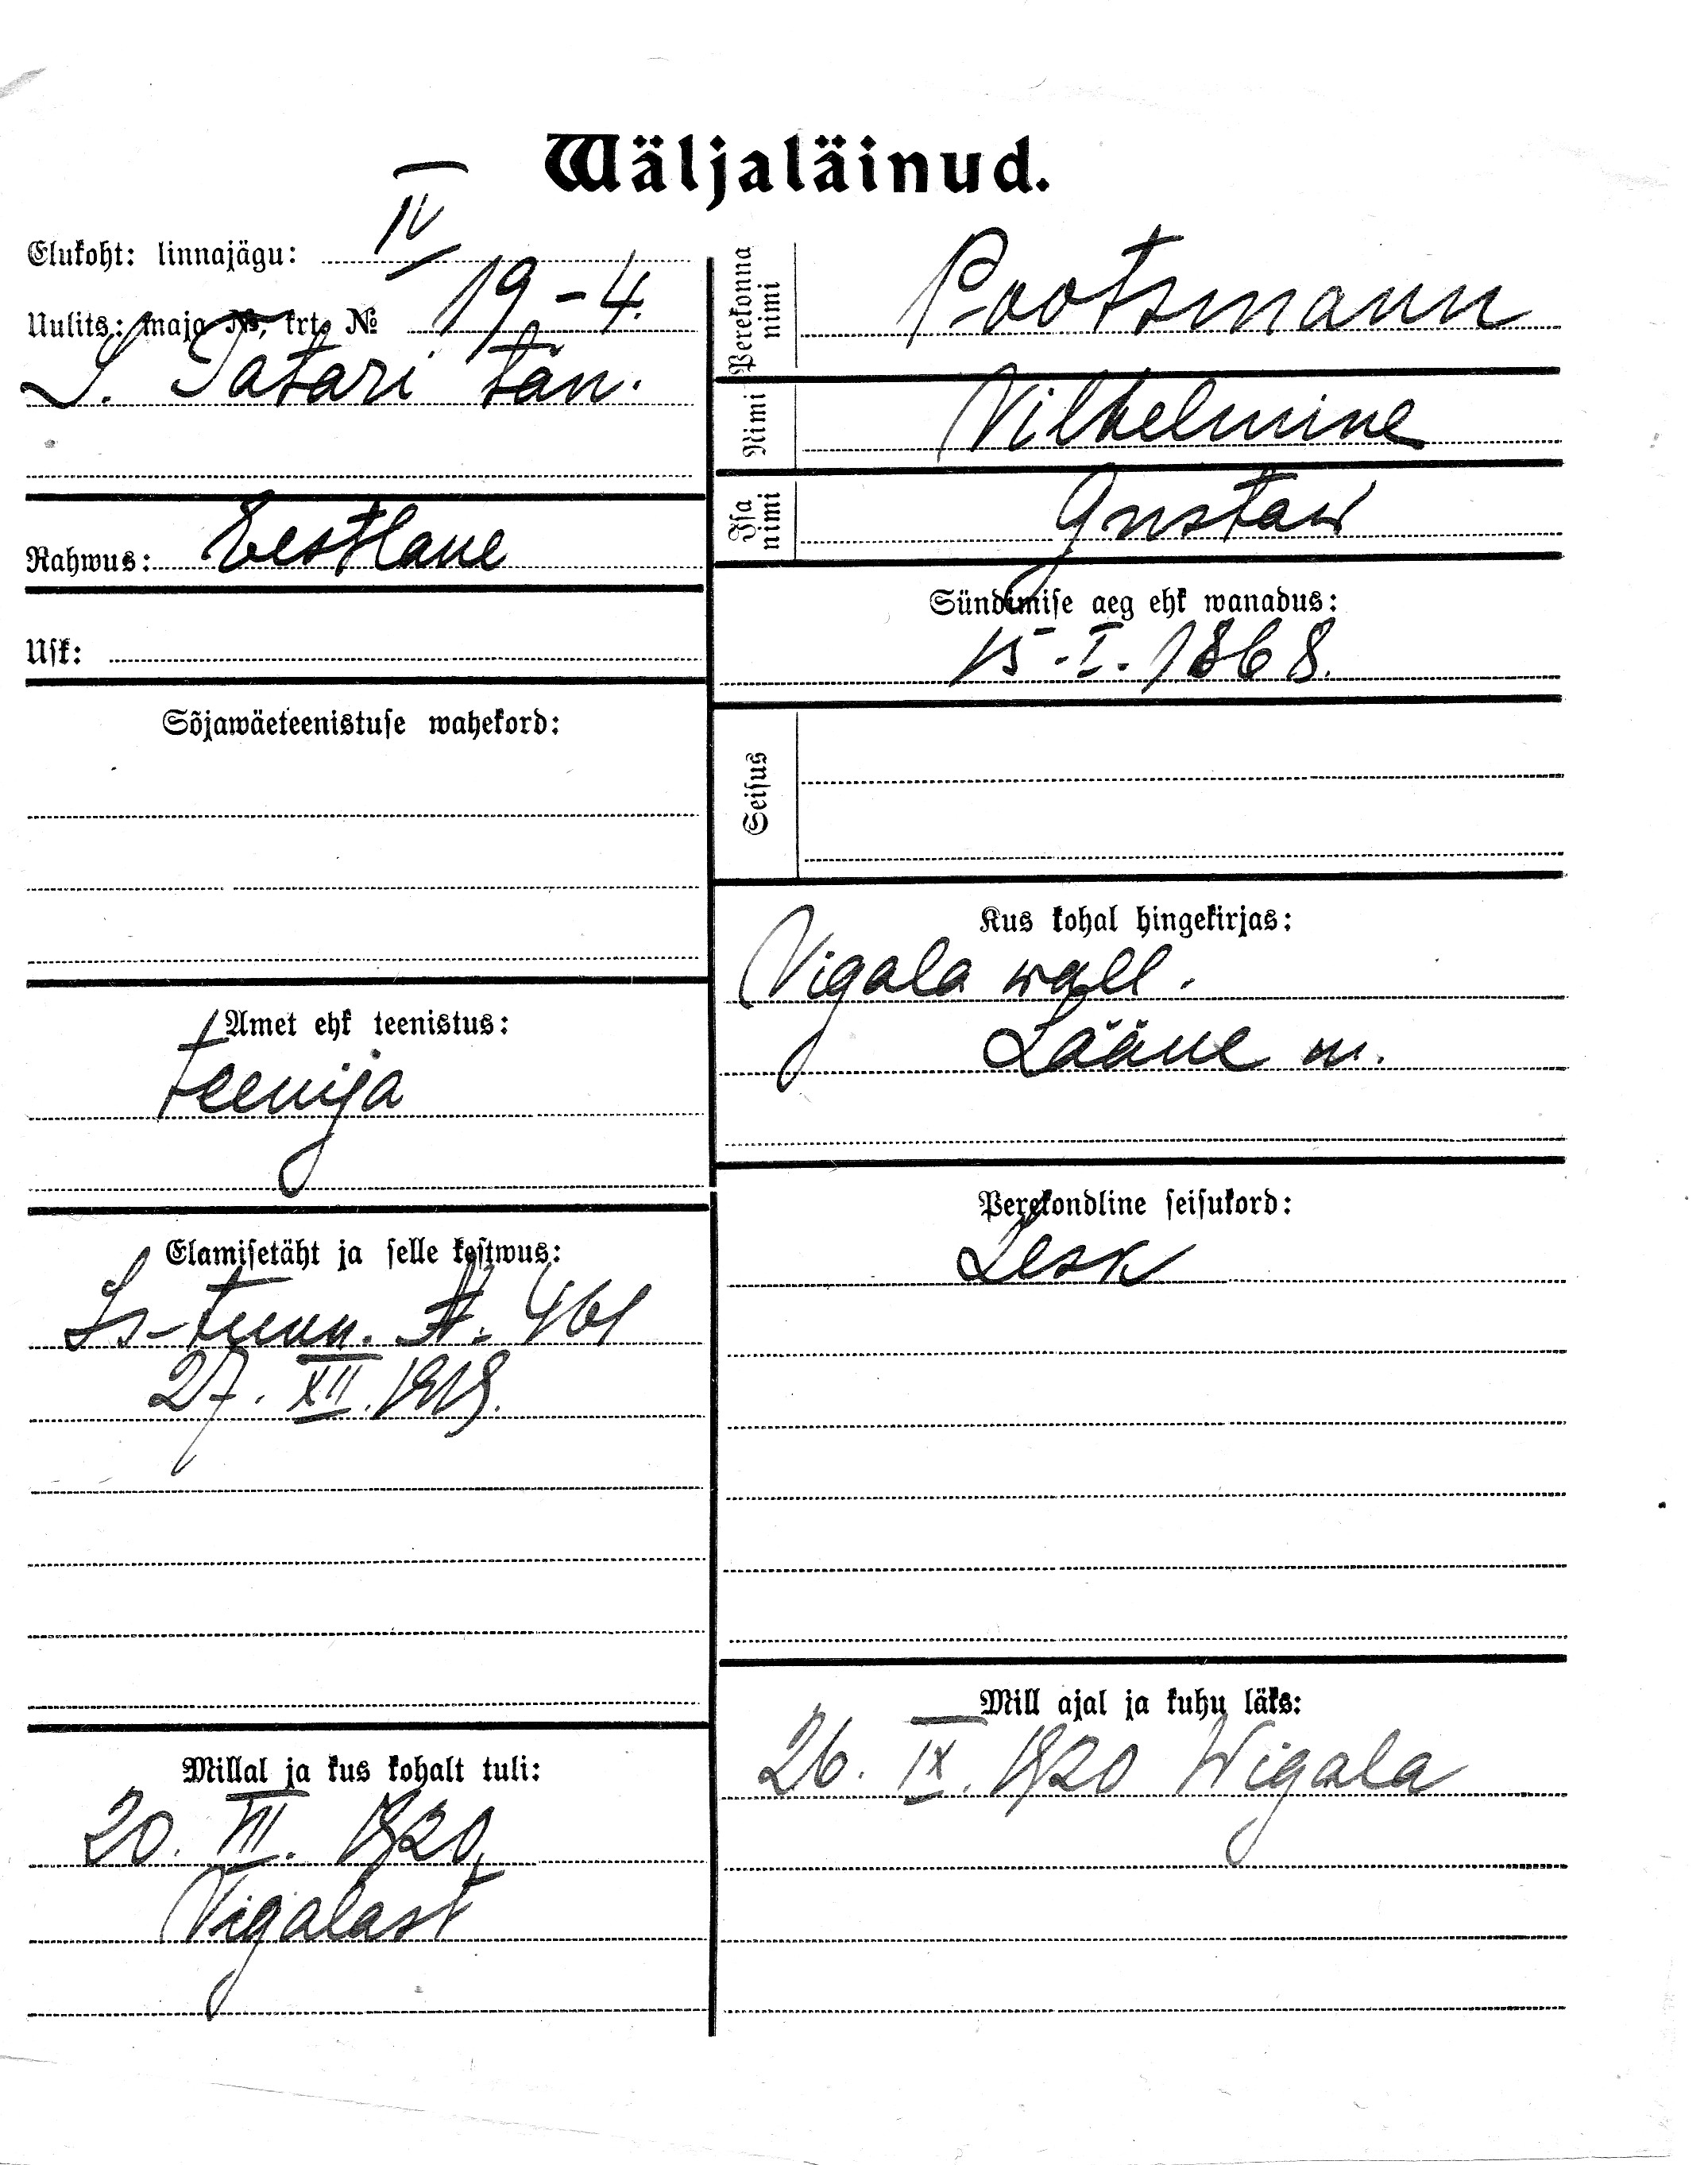 Wäljaläinud.
Elukoht: linnajägu: IV
Uulits: maja №, krt. № 19-4.
S. Tatari tän.
Rahwus: Eestlane
Usk:
Sõjawäeteenistuse wahekord:
Amet ehk teenistus:
teenija
Elamisetäht ja selle kestwus:
Is-tunn. № 461
27. XII. 1919.
Millal ja kus kohalt tuli:
20. VII. 1920
Vigalast
Perekonna nimi
Pootsmann
Nimi
Vilhelmine
Isa nimi
Gustaw
Sündimise aeg ehk wanadus:
15.I.1868.
Seisus
Kus kohal hingekirjas:
Vigala wall.
Lääne m.
Perekondline seisukord:
Lesk
Mill ajal ja kuhu läks:
26. IX. 1920 Wigala